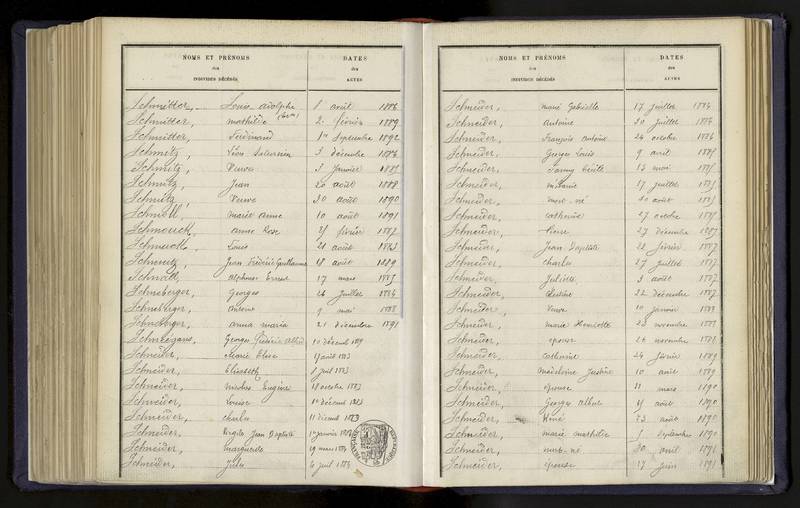 NOMS ET PRÉNOMS
des
INDIVIDUS DÉCÉDÉS
DATES
des
ACTES
Schmitter, Louis Adolphe 1 août 1886
Schmitter, Mathilde 2 février 1889
Schmitter, Ferdinand 1er septembre 1892
Schmitz, Léon 3 décembre
Schmitz, Veuve 3 janvier
Schmitz, Jean 20 août 1888
Schmitz, Veuve 30 août 1890
Schmoll, Marie Anne 10 août 1891
Schmouck, Anne Rose février 1887
Louis 21 août 1883
Jean Frédéric Guillaume 18 août 1889
Schnall, Alphonse Ernest 17 mars 1885
Schneberger, Georges 24 juillet 1884
Schneberger, Antoine 9 mai 1888
Schneberger, Anna Maria 21 décembre 1891
Schneegans, Georges Frédéric Alfred 10 décemb
Schneider, Marie Elise avril 1883
Schneider, Elisabeth juil 1883
Schneider, Nicolas Eugène 18 octobre 1883
Schneider, Louise 1er décemb 1883
Schneider, Charles 11 décemb 1883
Schneider, Virgile Jean Baptiste 1er janvier 1884
Schneider, Marguerite 29 mars 1884
Schneider, Jules 6 juil 1884
NOMS ET PRÉNOMS
des
INDIVIDUS DÉCÉDÉS
DATES
des
ACTES
Schneider, Marie Gabrielle 17 juillet 1884
Schneider, Antoine 30 juillet 1884
Schneider, François Antoine 24 octobre 1884
Schneider, Georges Louis 9 avril 1885
Schneider, Fanny 13 mai 1885
Schneider, Mélanie 17 juillet 1885
Schneider, mort-né 10 août 1885
Schneider, Catherine 27 octobre 1885
Schneider, Pierre 27 décembre
Schneider, Jean Baptiste 22 février 1887
Schneider, Charles 27 juillet 1887
Schneider, Juliette 3 août 1887
Schneider, 22 décembre 1887
Schneider, Veuve 10 janvier 1888
Schneider, Marie Henriette 23 novembre 1888
Schneider, épouse 26 novembre 1888
Schneider, Catherine 24 février 1889
Schneider, Madeleine Justine 10 août 1889
Schneider, épouse 31 mars 1890
Schneider, Georges Albert août 1890
Schneider, René 23 août 1890
Schneider, Marie Mathilde septembre 1890
Schneider, mort-né 30 avril 1891
Schneider, épouse 17 juin 1891